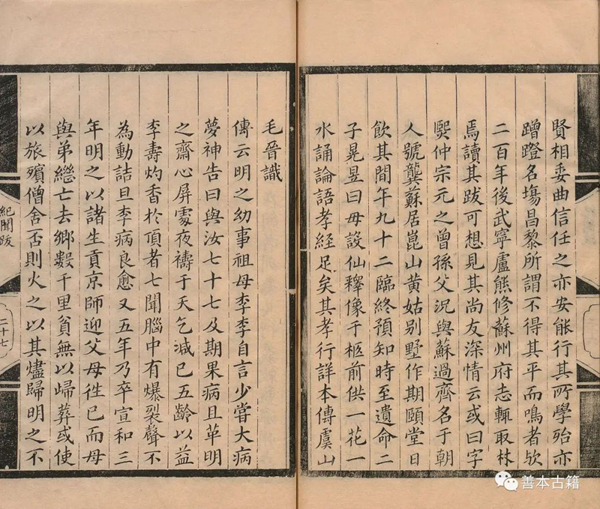 賢相委曲信任之亦安能行其所學殆亦
蹭蹬名塲昌黎所謂不得其平而鳴者歟
二百年後武寧盧熊修蘇州府志輒取林
焉讀其跋可想見其尚友深情云或曰字
熙仲宗元之曾孫父況與蘇過齊名于朝
人號龔蘇居崑山黄姑别墅作期頤堂日
飲其間年九十二臨終預知時至遺命二
子晃昱曰毋設仙釋像于柩前供一花一
水誦論語孝經足矣其孝行詳本傳虞山
毛晉識
傳云明之幼事祖母李李自言少嘗大病
夢神告曰與汝七十七及期果病且革明
之齋心屏處夜禱于天乞減已五齡以益
李壽灼香於頂者七聞腦中有爆裂聲不
為動詰旦李病良愈又五年乃卒宣和三
年明之以諸生貢京師迎父母徃已而母
與弟繼亡去鄉數千里貧無以歸葬或使
以旅殯僧舍否則火之以其燼歸明之不
紀聞跋
二十七
善本古籍